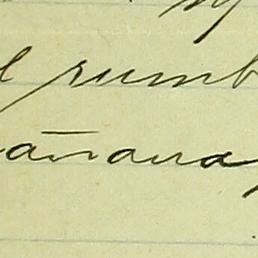 l rumb
añana,